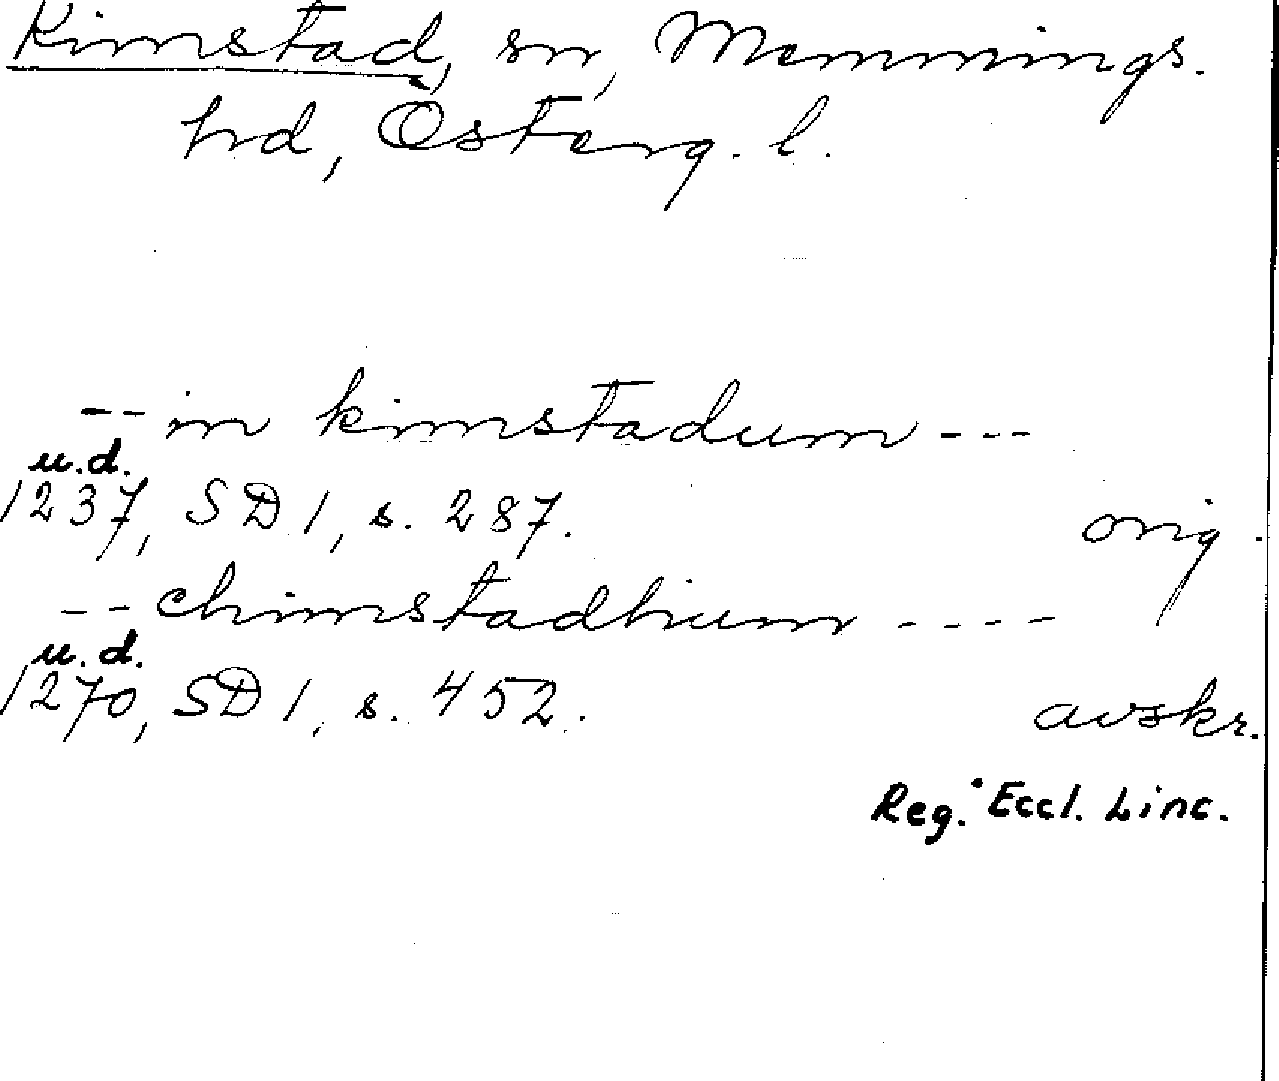 Kimstad, sn, Memmings.
hd, Österg. l.
-- in kimstadum ---
u.d.
1237, SD 1, s. 287. orig.
-- chimstadhum ----
u.d.
1270, SD 1, s. 452. avskr.
Reg. Eccl. Linc.